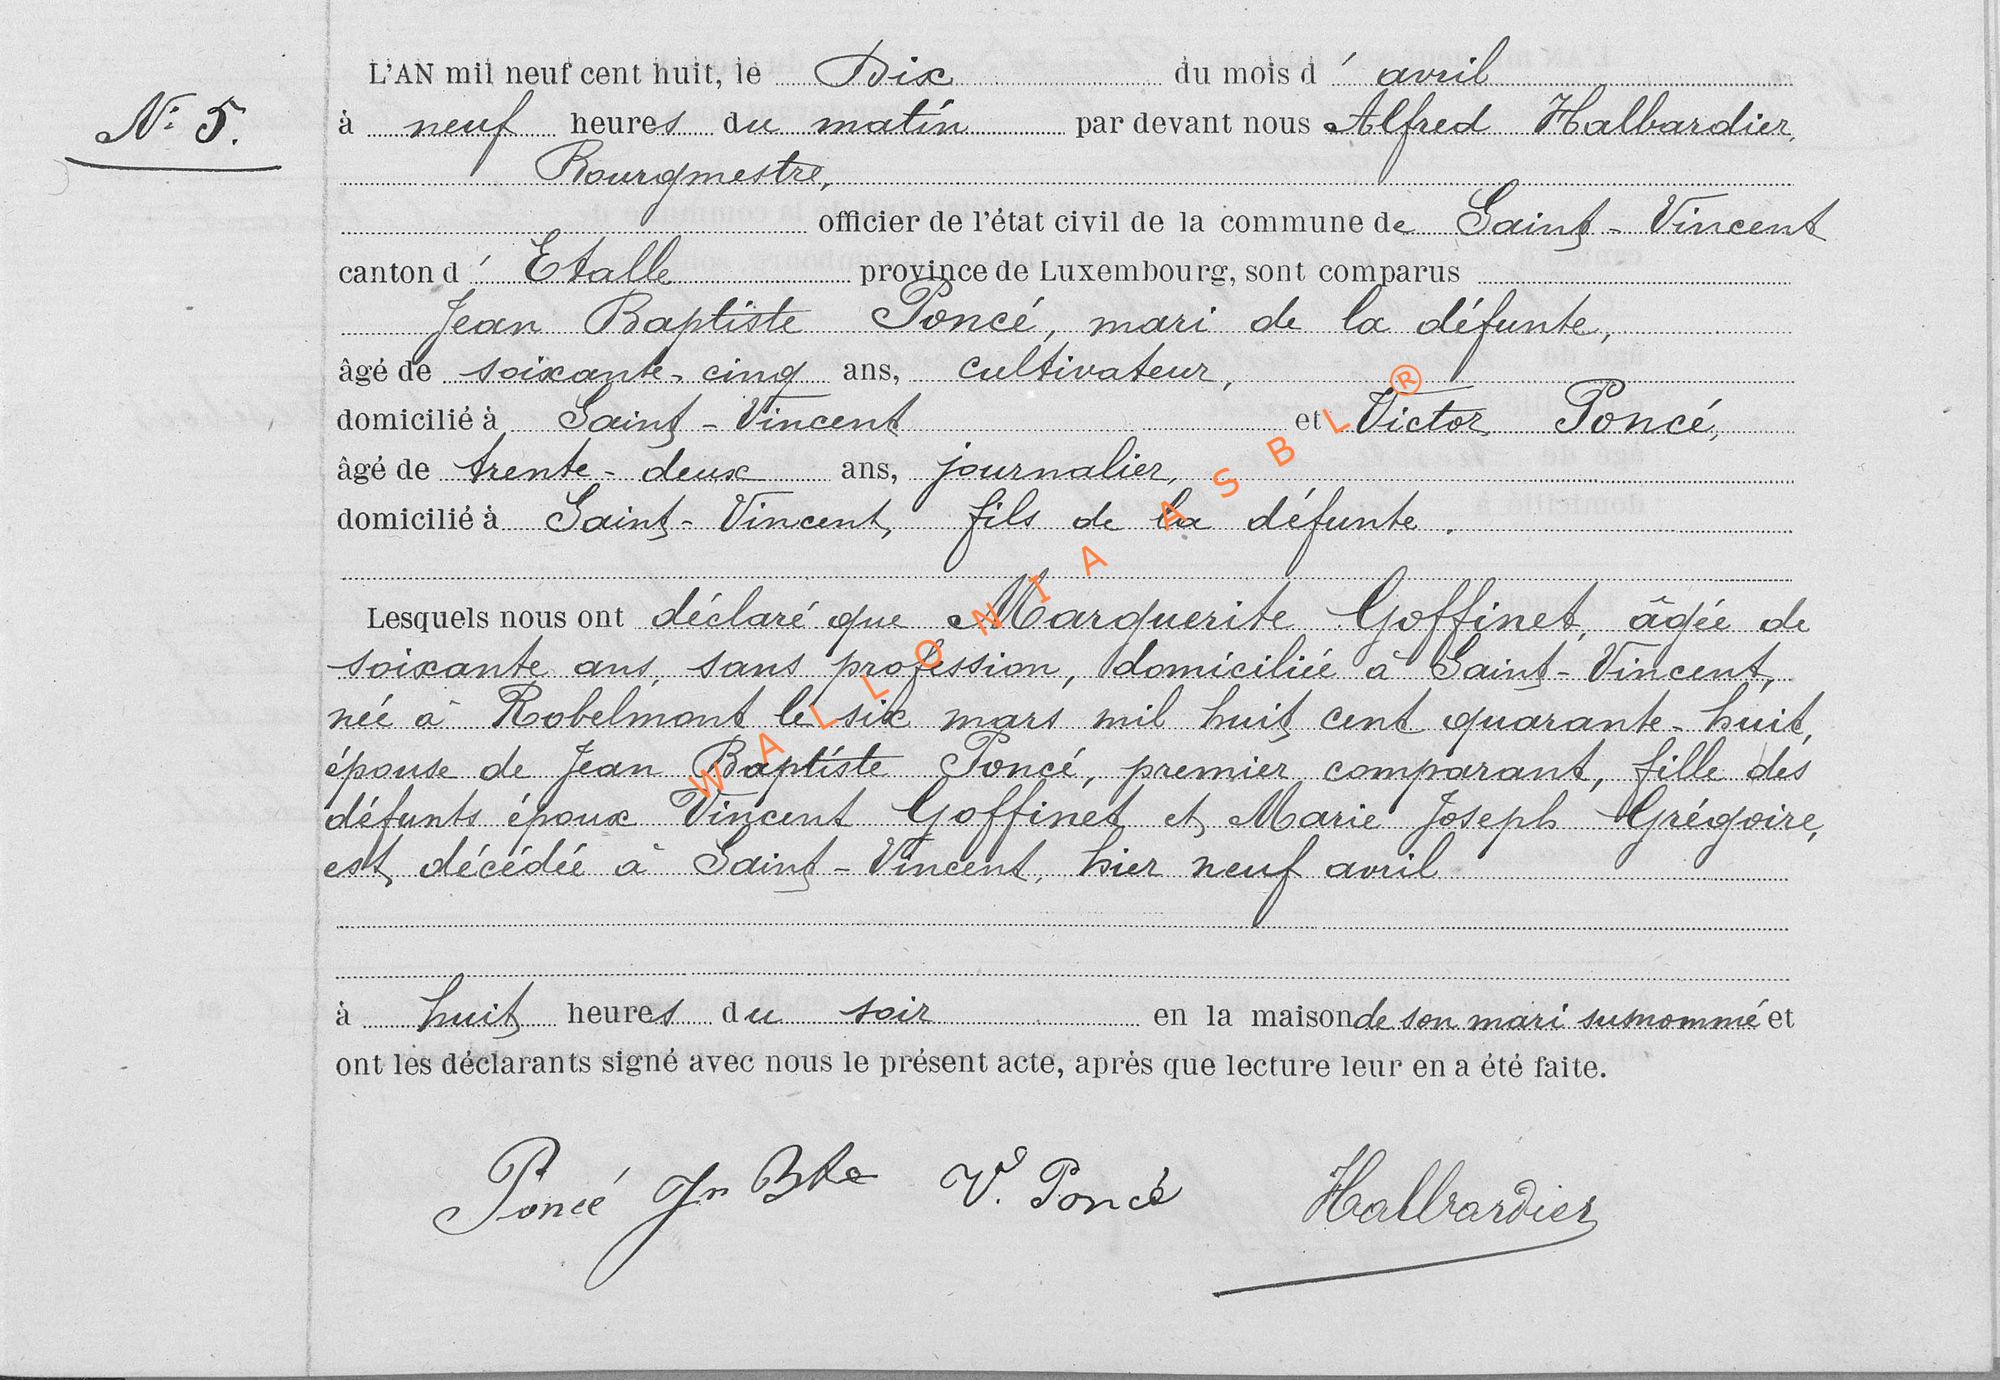 N° 5.
L'AN mil neuf cent huit, le Dix du mois d' avril
à neuf heures du matin par devant nous Alfred Halbardier,
Bourgmestre,
officier de l'état civil de la commune de Saint-Vincent
canton d' Etalle province de Luxembourg, sont comparus
Jean Baptiste Poncé, mari de la défunte,
âgé de soixante-cinq ans, cultivateur,
domicilié à Saint-Vincent et Victor Poncé,
âgé de trente-deux ans, journalier,
domicilié à Saint-Vincent, fils de la défunte.
Lesquels nous ont déclaré que Marguerite Goffinet, âgée de
soixante ans, sans profession, domiciliée à Saint-Vincent,
née à Robelmont le six mars mil huit cent quarante-huit,
épouse de Jean Baptiste Poncé, premier comparant, fille des
défunts époux Vincent Goffinet et Marie Joseph Grégoire,
est décédée à Saint-Vincent, hier neuf avril
à huit heures du soir en la maison de son mari susnommé et
ont les déclarants signé avec nous le présent acte, après que lecture leur en a été faite.
Poncé Jn Bte V. Poncé Halbardier
WALLONIA ASBL ®